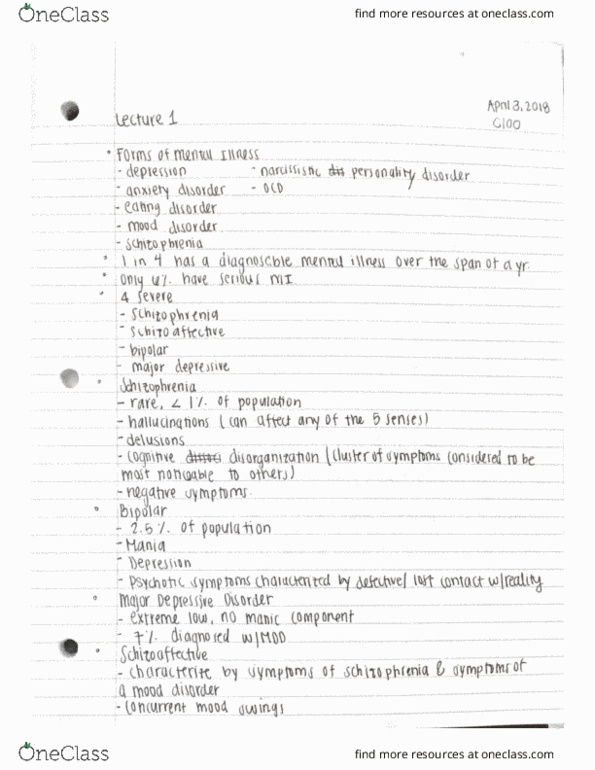 OneClass
find more resources at oneclass.com
April 3, 2018
Lecture 1
C100
• Forms of mental Illness
- depression - narcissistic dis personality disorder
- anxiety disorder - OCD
- eating disorder
- mood disorder
- schizophrenia
• 1 in 4 has a diagnosable mental illness over the span of a yr.
• only 6% have serious MI.
• 4 severe
- schizophrenia
- schizoaffective
- bipolar
- major depressive
• Schizophrenia
- rare, < 1% of population
- hallucinations (can affect any of the 5 senses)
- delusions
- cognitive disorganization (cluster of symptoms considered to be
most noticable to others)
- negative symptoms.
• Bipolar
- 2.5% of population
- Mania
- Depression
- Psychotic symptoms characterized by defective/lost contact w/reality
• Major Depressive Disorder
- extreme low, no manic component
- 7% diagnosed w/MDD
• Schizoaffective
- characterize by symptoms of schizophrenia & symptoms of
a mood disorder
- concurrent mood swings
OneClass
find more resources at oneclass.com